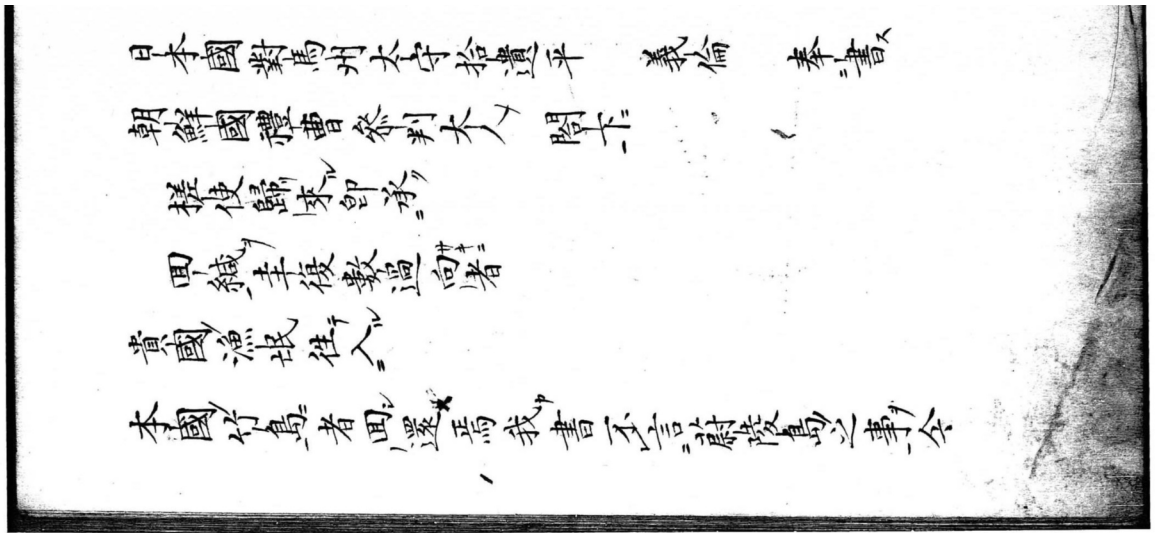 日本國對馬州太守拾遺平　義倫　奉書
朝鮮國禮曹参判大人　閤下
槎使歸来即承
回緘圭復數過向者
貴國漁氓徃入
本國竹島者回還焉我書不言蔚陵島之事今